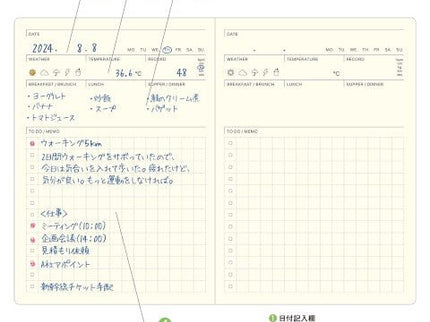 DATE
2024. 8. 8 MO TU WE TH FR SA SU
WEATHER TEMPERATURE RECORD
36.6 ℃ 48
BREAKFAST / BRUNCH LUNCH SUPPER / DINNER
・ヨーグルト ・炒飯 ・鮭のクリーム煮
・バナナ ・スープ ・バゲット
・トマトジュース
TO DO / MEMO
ウォーキング5km
2日間ウォーキングをサボっていたので、
今日は気合いを入れて歩いた。疲れたけど、
気分が良い。もっと運動をしなければ。
<仕事>
ミーティング(10:00)
企画会議(14:00)
見積もり依頼
A社アポイント
新幹線チケット手配
DATE
. . MO TU WE TH FR SA SU
WEATHER TEMPERATURE RECORD
℃
BREAKFAST / BRUNCH LUNCH SUPPER / DINNER
TO DO / MEMO
日付記入欄